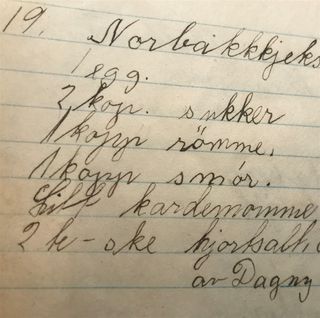 19. Norbakkkjeks
1 egg.
2 kop. sukker
1 kopp römme.
1 kopp smör.
Litt kardemomme
2 te-ske hjortsalt,
av Dagny